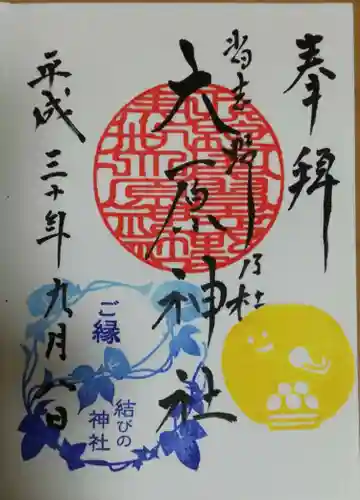 奉拝
習志野乃社
大原神社
平成三十年九月八日
ご縁
結びの
神社